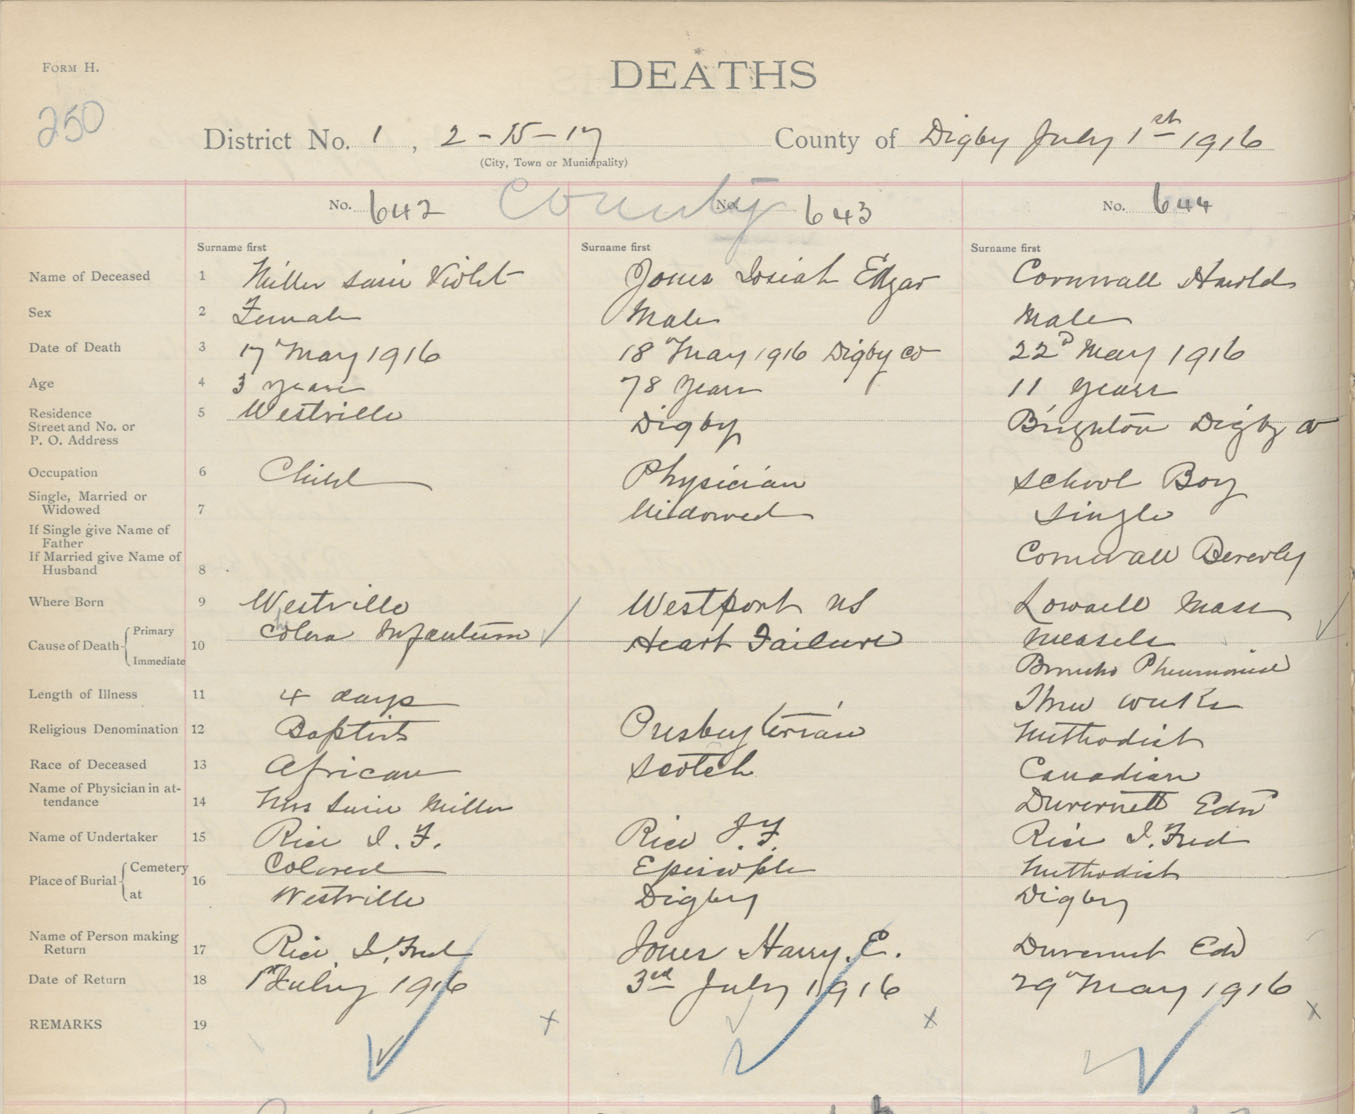 FORM H.
DEATHS
250
District No. 1, 2-15-17 County of Digby July 1st 1916
(City, Town or Municipality)
County
No. 642 No. 643 No. 644
Surname first Surname first Surname first
Name of Deceased 1 Miller Susie Violet Jones Josiah Edgar Cornwall Harold
Sex 2 Female Male Male
Date of Death 3 17 May 1916 18 May 1916 Digby Co 22d May 1916
Age 4 3 years 78 Years 11 years
Residence
Street and No. or
P. O. Address 5 Westville Digby Brighton Digby Co
Occupation 6 Child Physician School Boy
Single, Married or
Widowed 7 Widowed Single
If Single give Name of
Father
If Married give Name of
Husband 8 Cornwall Beverly
Where Born 9 Westville Westport NS Lowaell Mass
Cause of Death 10 Primary Cholera Infantum Heart Failure Measels
Immediate Broncho Pheumonied
Length of Illness 11 4 days Three weeks
Religious Denomination 12 Baptist Presbyterian Methodist
Race of Deceased 13 African Scotch Canadian
Name of Physician in at-
tendance 14 Mrs Susie Miller Duvernett Edw
Name of Undertaker 15 Rice I. F. Rice J. F. Rice I. Fred
Place of Burial 16 Cemetery Colored Episcople Methodist
at Westville Digby Digby
Name of Person making
Return 17 Rice, I, Fred Jones Harry. E. Duvernet Edw
Date of Return 18 1st July 1916 3rd July 1916 29 May 1916
REMARKS 19 x x x